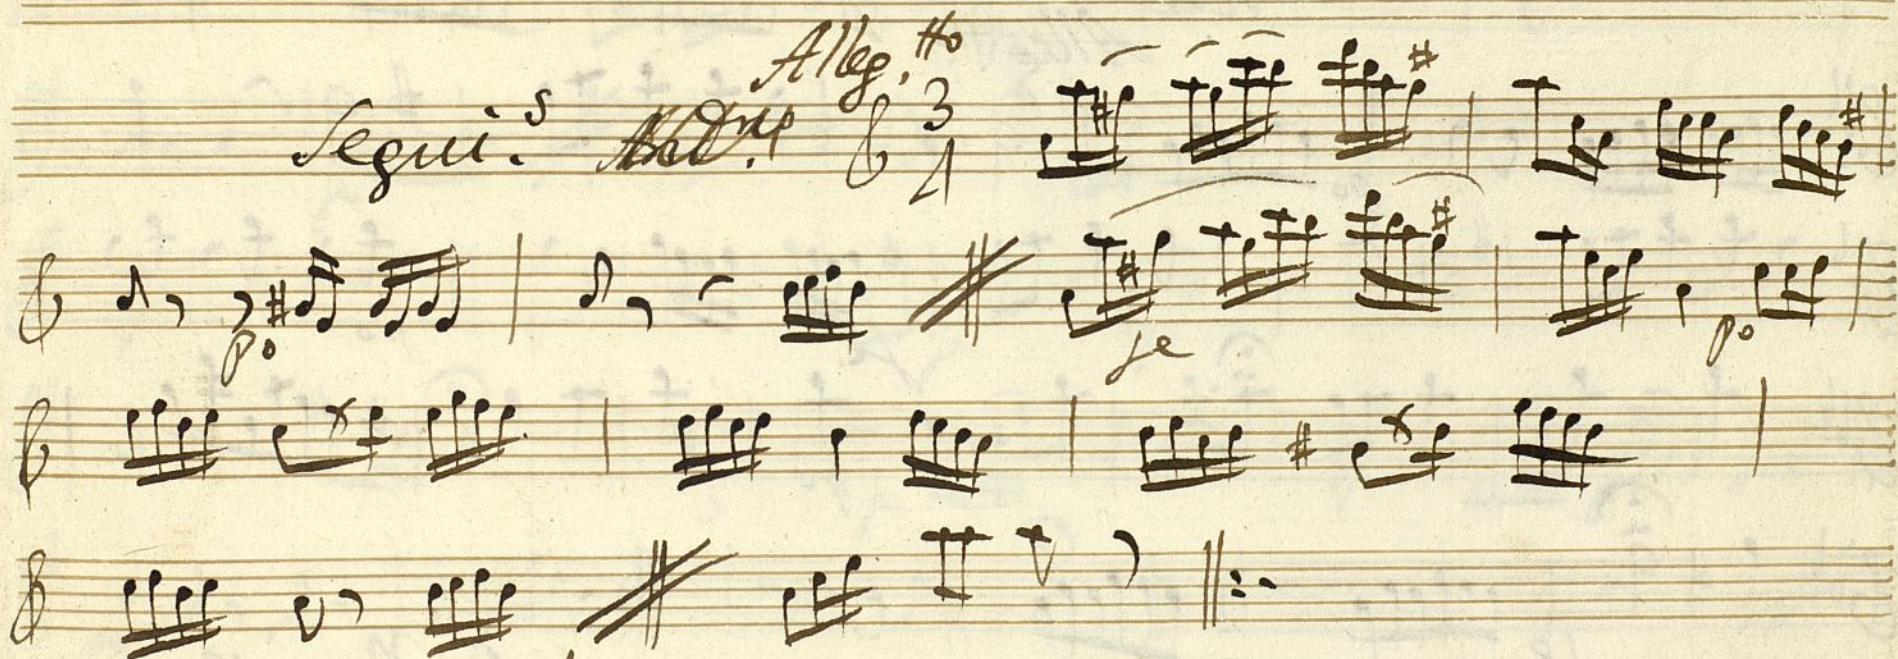 Alleg.tto
Segui.s 3
4
po
fe po